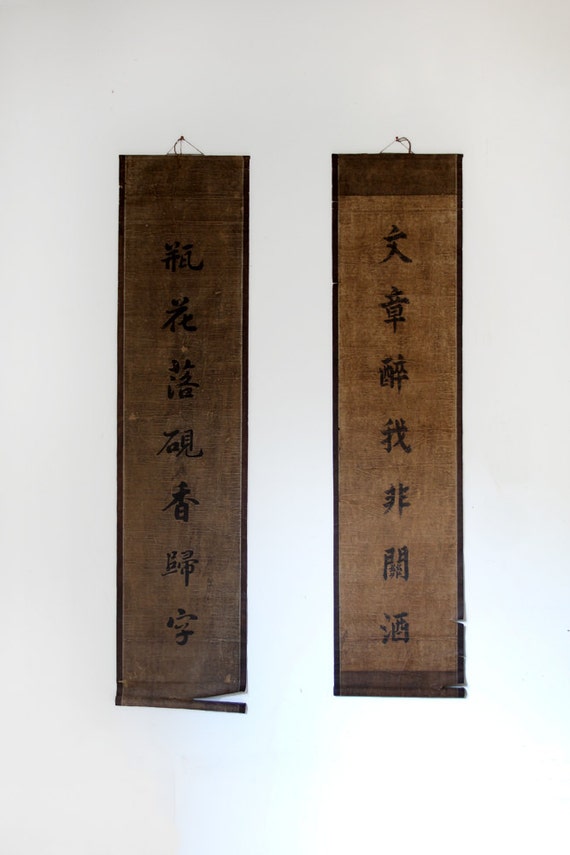 文章醉我非關酒
瓶花落硯香歸字